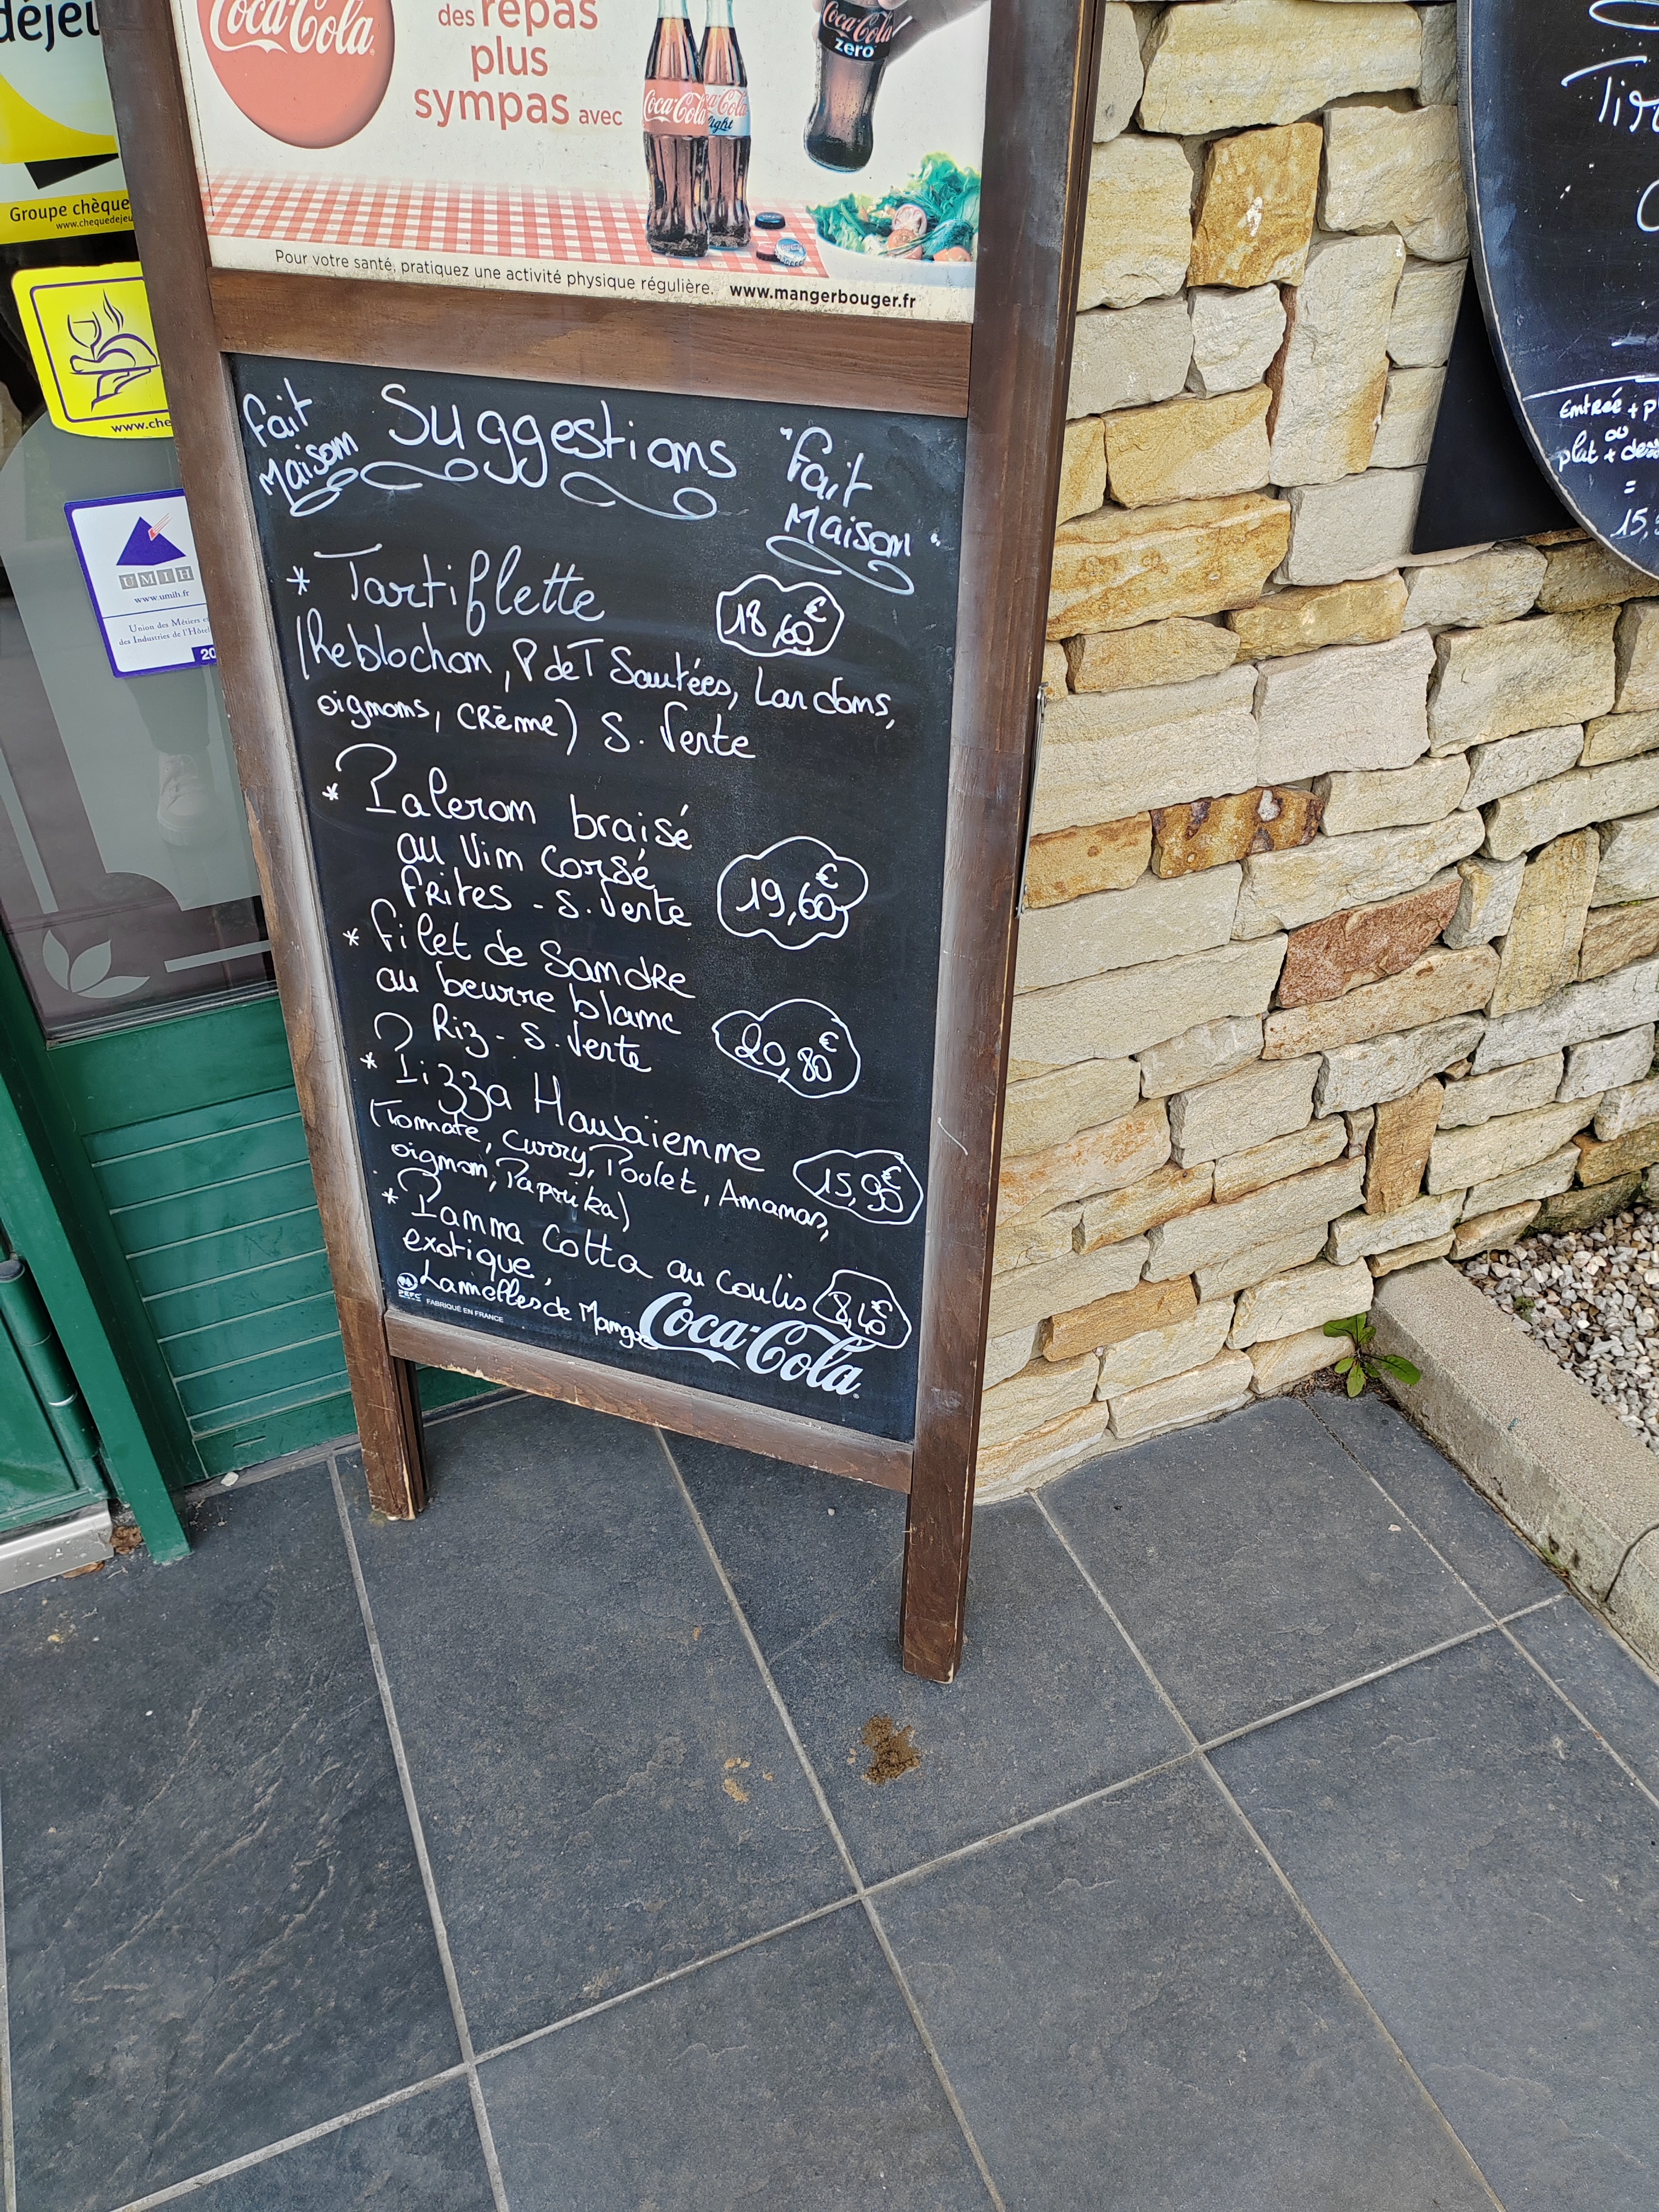 déjeu
Groupe chèque
www.chequedejeu
www.che
UMIH
www.umih.fr
Union des Métiers e
des Industries de l'Hôtel
20
Coca-Cola
des repas
plus
sympas avec
Coca-Cola
Coca-Cola
light
Coca-Cola
zero
Pour votre santé, pratiquez une activité physique régulière. www.mangerbouger.fr
Fait
Maison
Suggestions
"Fait
Maison"
* Tartiflette
18,60€
(Reblochon, P de T Sautées, Lardons,
oignons, crème) S. Verte
* Paleron braisé
au Vin Corsé
Frites - S. Verte
19,60€
* Filet de Sandre
au beurre blanc
Riz - S. Verte
20,80€
* Pizza Hawaïenne
(Tomate, curry, Poulet, Ananas,
oignon, Paprika)
15,90€
* Panna Cotta au coulis
exotique,
Lamelles de Mangue
8,40€
PEFC
FABRIQUÉ EN FRANCE
Coca-Cola
Entrée + p
ou
plat + des
=
15,